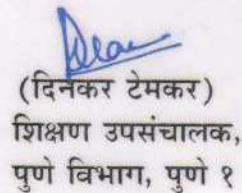 (दिनकर टेमकर)
शिक्षण उपसंचालक,
पुणे विभाग, पुणे १